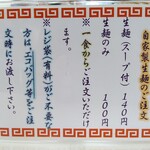 自家製生麺のご注文
生麺(スープ付)140円
生麺のみ 100円
※一食からご注文いただけ
ます。
※レジ袋(有料)がご不要な
方は、エコバッグ等をご注
文時にお渡し下さい。